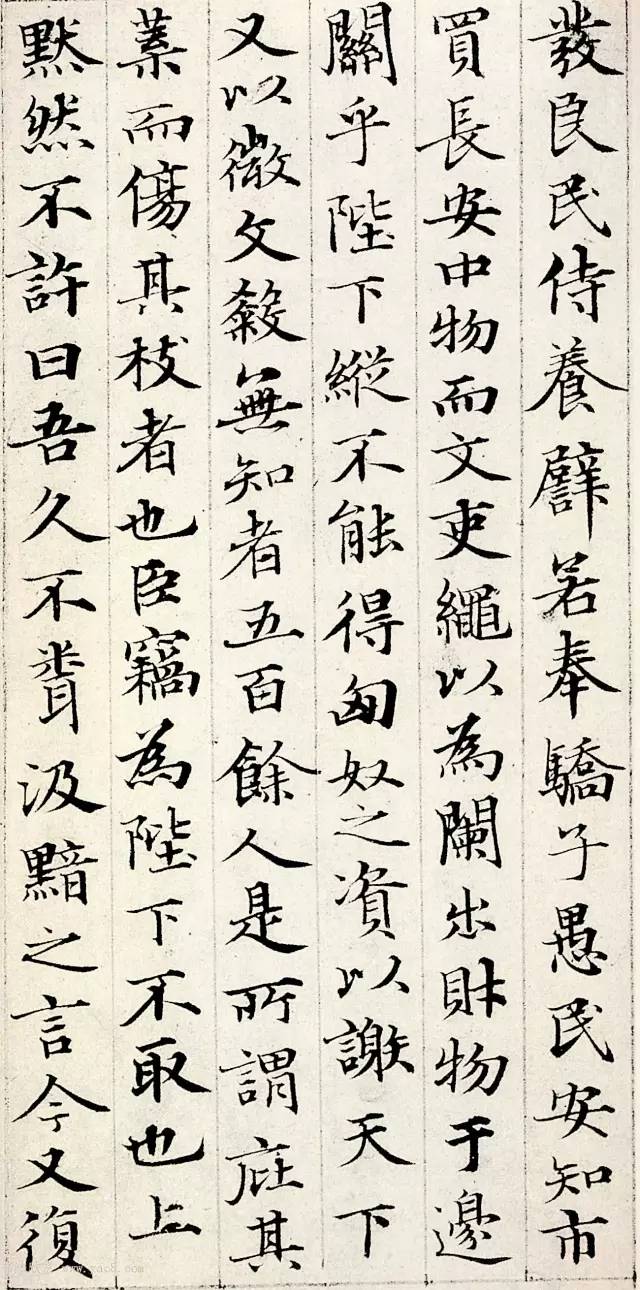 發良民侍養譬若奉驕子愚民安知市
買長安中物而文吏繩以為闌出財物于邊
關乎陛下縱不能得匈奴之資以謝天下
又以微文殺無知者五百餘人是所謂庇其
葉而傷其枝者也臣竊為陛下不取也上
黙然不許曰吾久不聞汲黯之言今又復